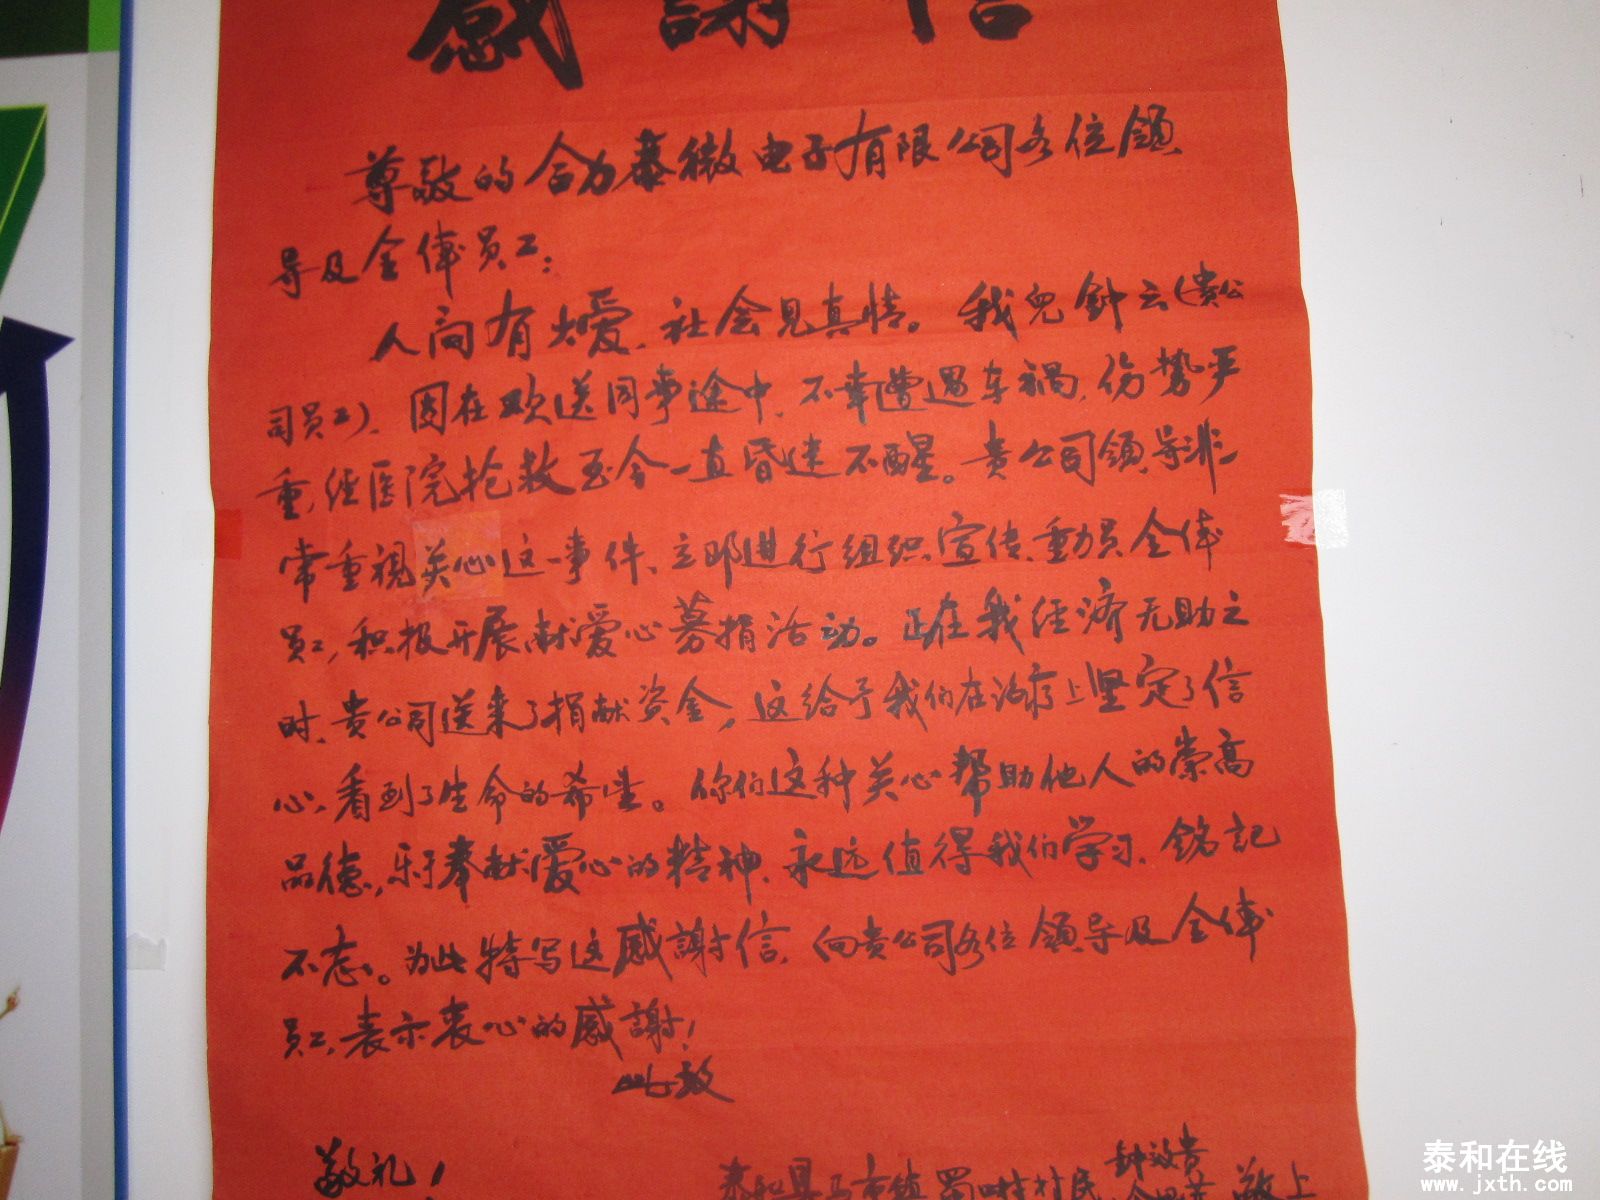 感謝信
尊敬的合力泰微电子有限公司各位領
导及全体员工：
人间有大爱、社会见真情。我儿鈡云(贵公
司员工)、因在欢送同事途中、不幸遭遇车祸，伤势严
重，经医院抢救至今一直昏迷不醒。贵公司領导非
常重視关心这一事件、立即进行组织、宣传、動员全体
员工，积极开展献爱心募捐活动。正在我经济无助之
时、贵公司送来了捐献资金，这给予我们在治疗上坚定了信
心、看到了生命的希望。你们这种关心帮助他人的崇高
品德，乐于奉献爱心的精神、永远值得我们学习、銘記
不忘。为此特写这感謝信、向贵公司各位領导及全体
员工，表示衷心的感謝！
此致
敬礼！
泰和县马市镇蜀口村村民
敬上
泰和在线
www.jxth.com